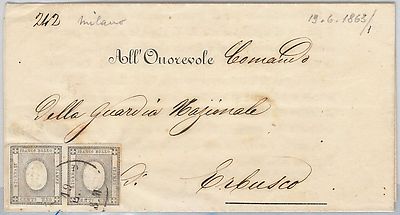 242 Milano 19.6.1863/1
All'Onorevole Comando
della Guardia Nazionale
di
Erbusco
FRANCO BOLLO FRANCO BOLLO